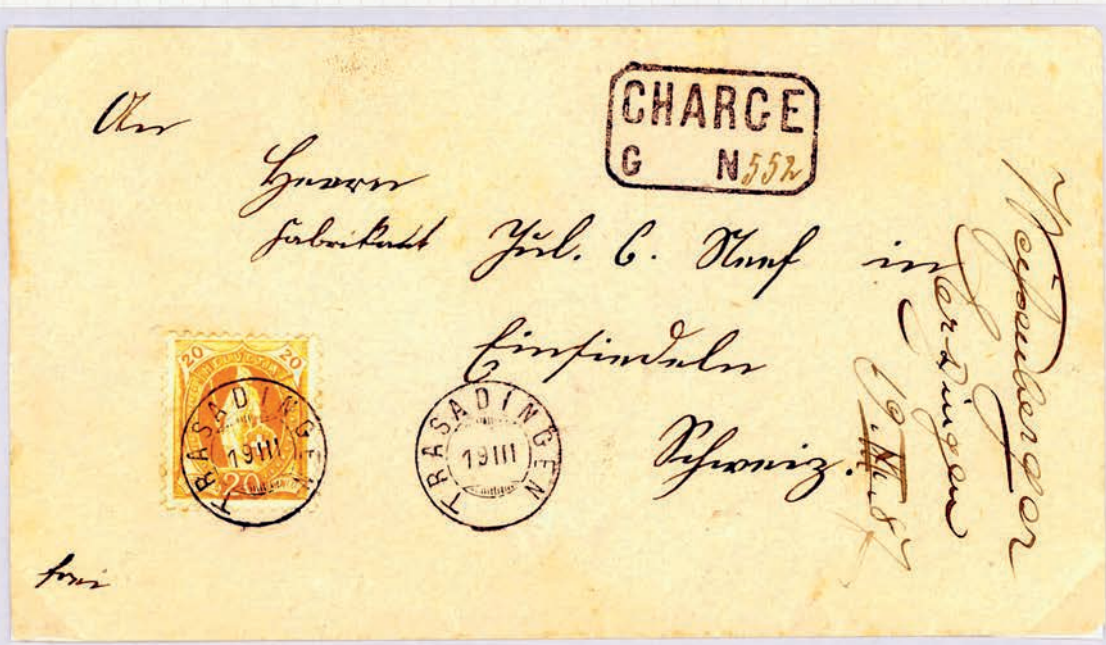 An
CHARGE
G N 552
Herrn
Fabrikant Jul. C. Neef in
Einsiedeln
Schweiz.
20 20
20
TRASADINGEN
19 III
TRASADINGEN
19 III
frei
Erzingen
19. III. 87